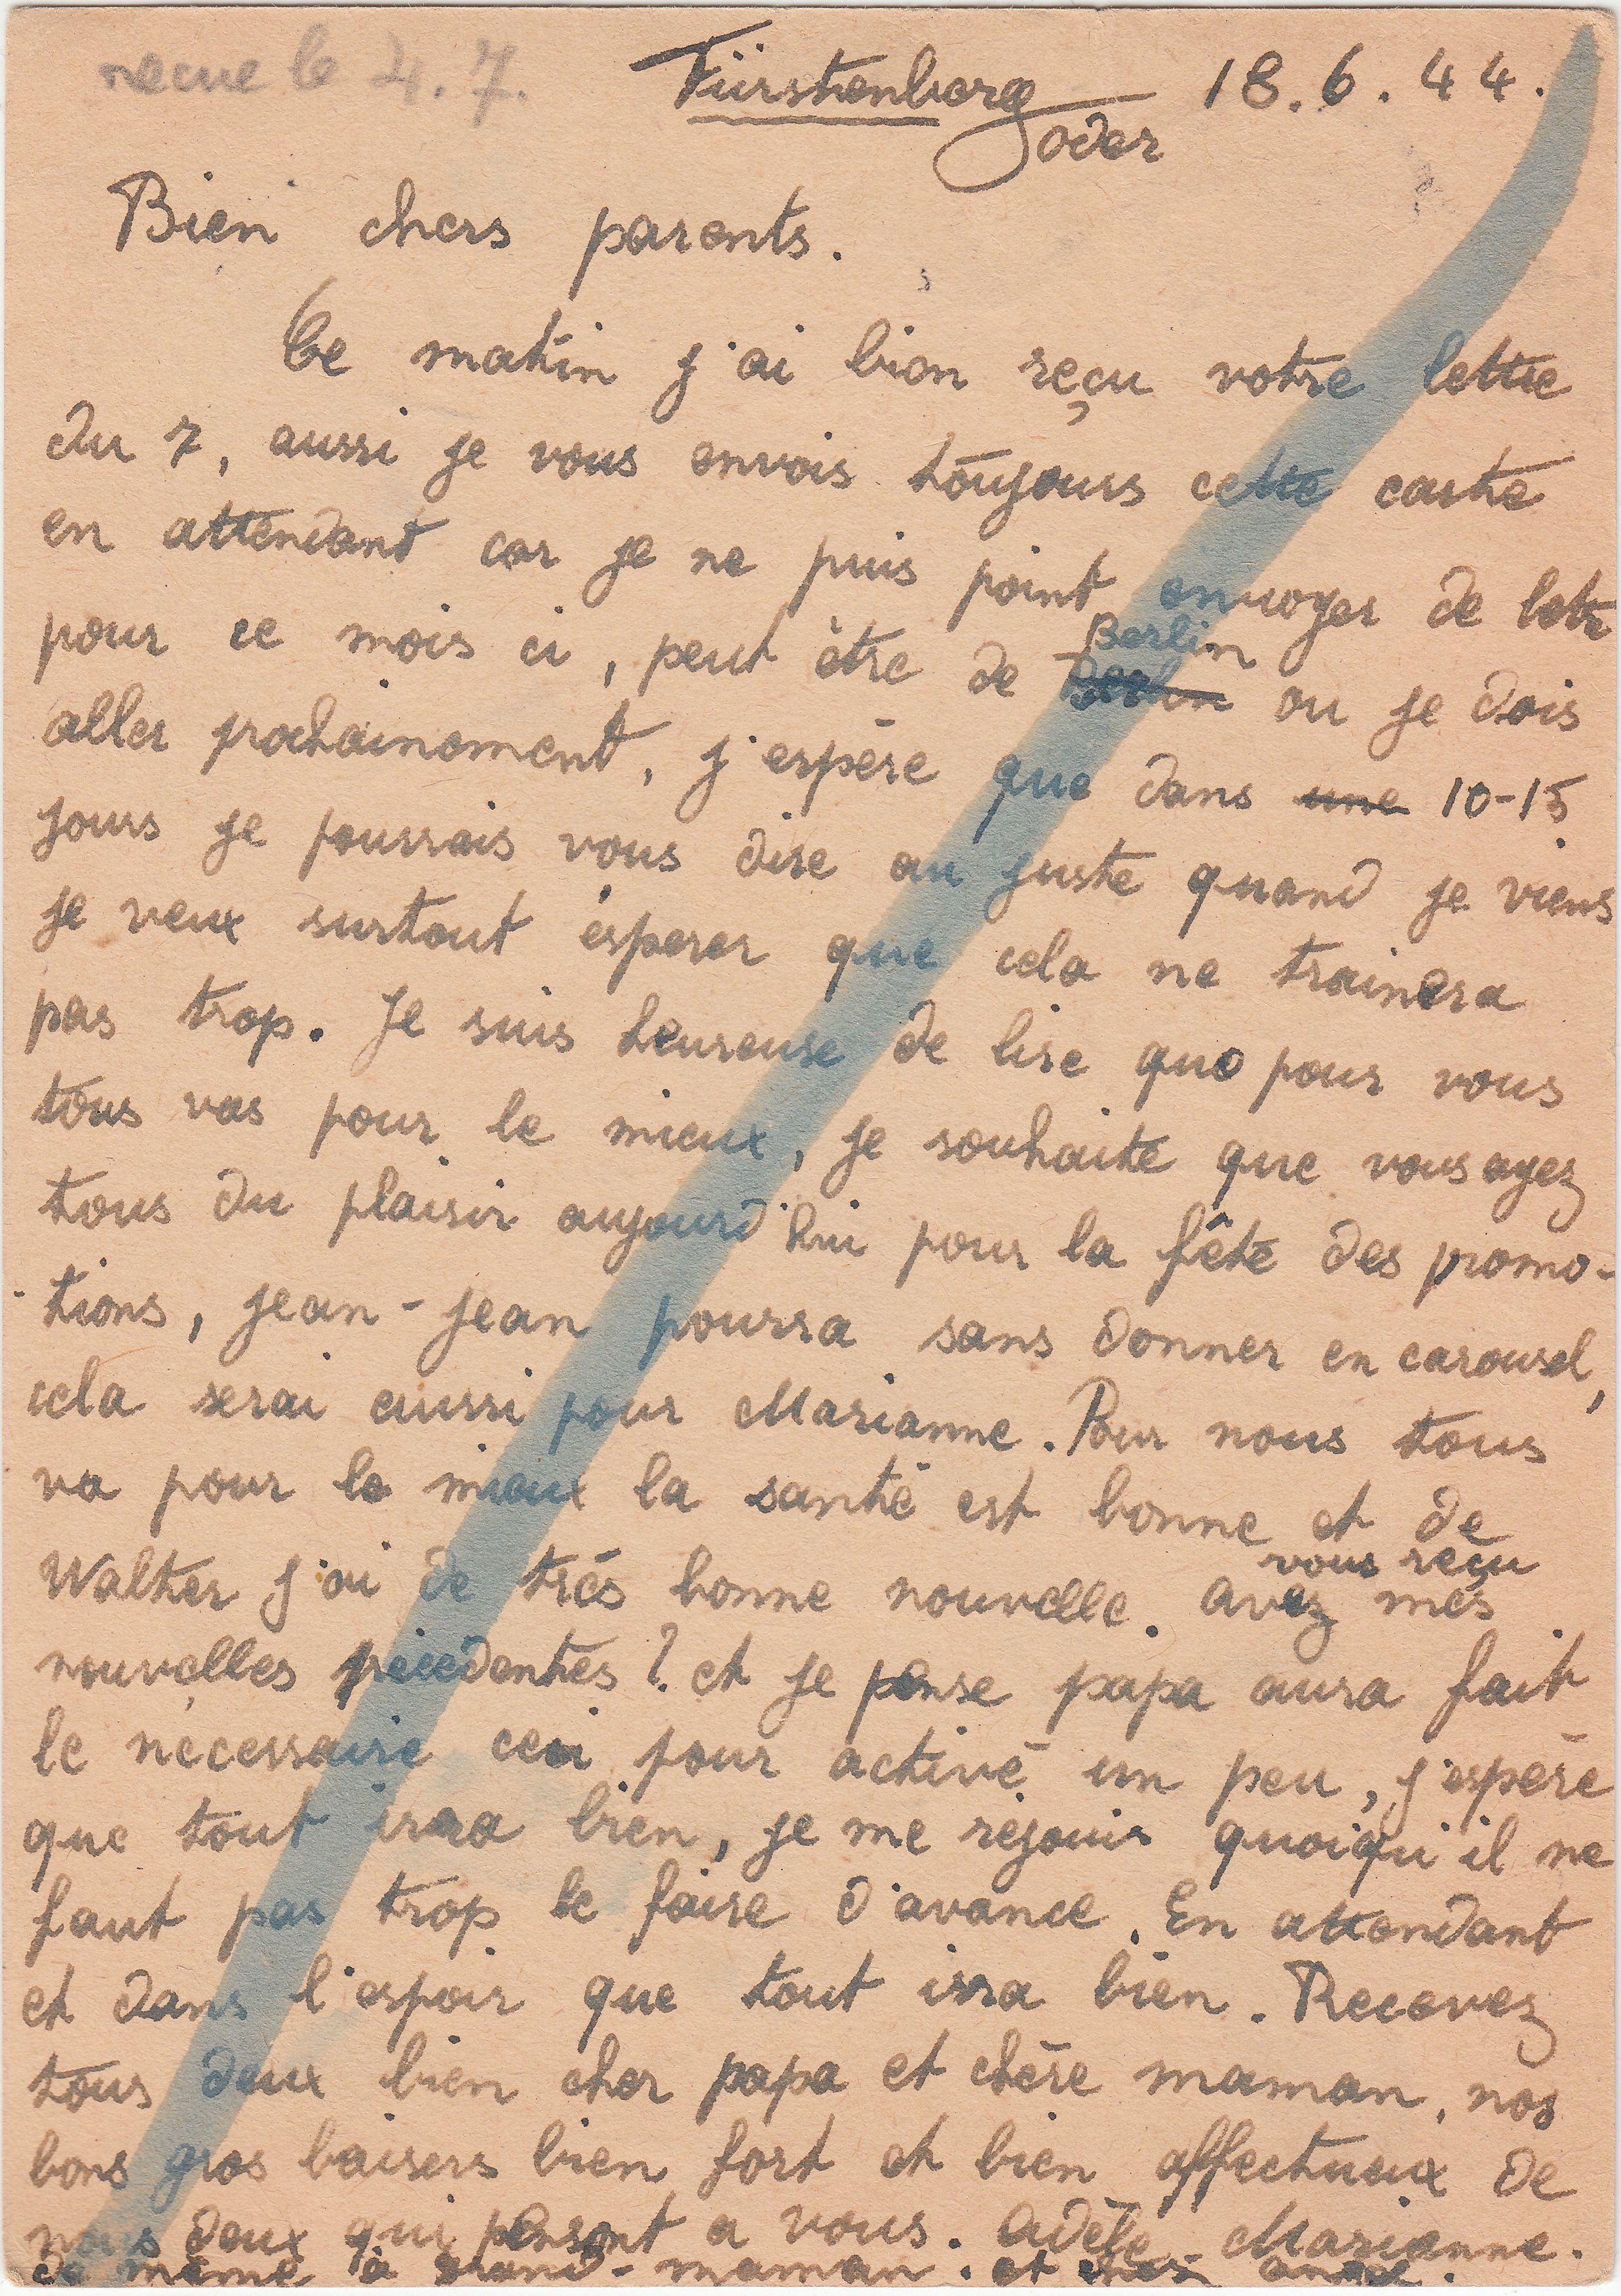 recue le 4. 7.
Fürstenberg 18.6.44.
Oder
Bien chers parents.
Ce matin j'ai bien reçu votre lettre
du 7, aussi je vous envois toujours cette carte
en attendant car je ne puis point envoyer de lettr
pour ce mois ci, peut être de Berlin ou je dois
aller prochainement, j'espère que dans une 10-15
jours je pourrais vous dire au juste quand je viens
je veux surtout ésperer que cela ne trainera
pas trop. Je suis heureuse de lire que pour vous
tous vas pour le mieux, je souhaite que vous ayez
tous du plaisir aujourd'hui pour la fête des promo-
tions, Jean-Jean pourra sans donner en carousel,
cela serai aussi pour Marianne. Pour nous tous
va pour le mieux la santé est bonne et de
Walter j'ai de très bonne nouvelle. avez vous reçu mes
nouvelles précédentes? et je pense papa aura fait
le nécessaire ceci pour activé un peu, j'espère
que tout irra bien, je me réjouis quoiqu'il ne
faut pas trop le faire d'avance. En attendant
et dans l'espoir que tout irra bien. Recevez
tous deux bien cher papa et chère maman, nos
bons gros baisers bien fort et bien affectueux de
nous deux qui pensent a vous. Adèle Marianne.
de même à grand-maman. et